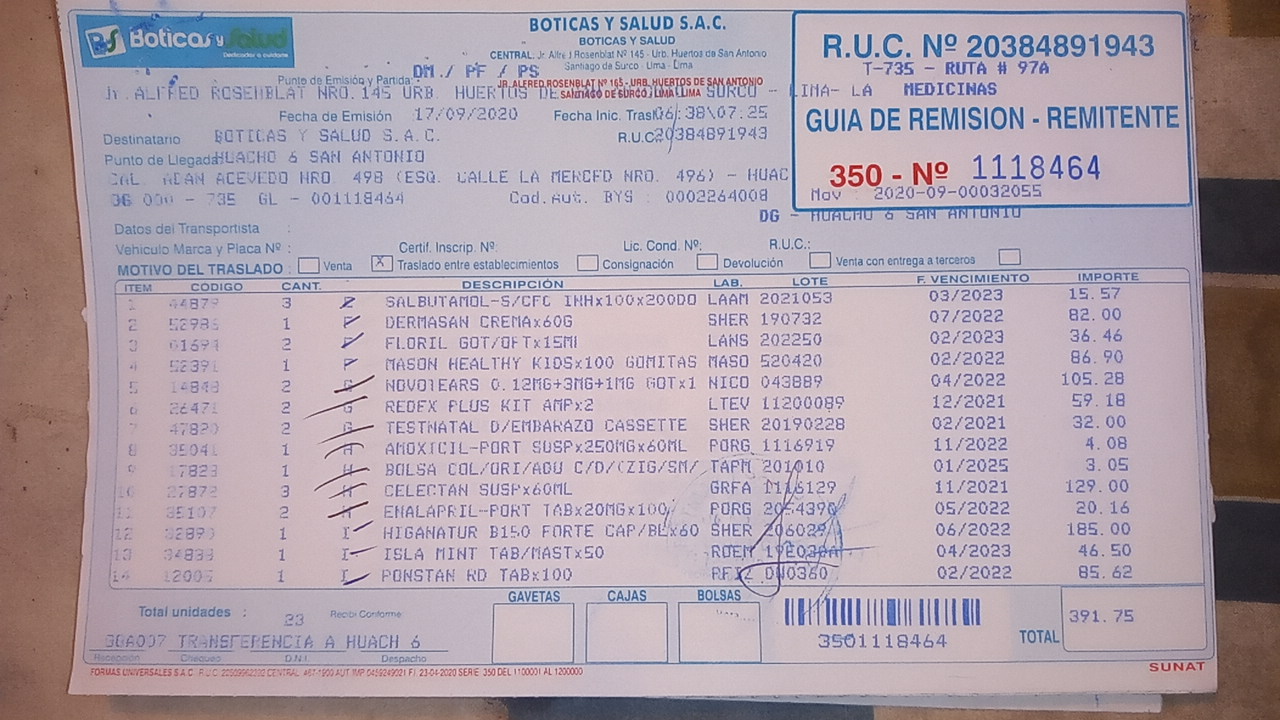 BS Boticas y Salud
Dedicados a cuidarte
BOTICAS Y SALUD S.A.C.
BOTICAS Y SALUD
CENTRAL: Jr. Alfred Rosenblat Nº 145 - Urb. Huertos de San Antonio
Santiago de Surco - Lima - Lima
R.U.C. Nº 20384891943
T-735 - RUTA # 97A
MEDICINAS
GUIA DE REMISION - REMITENTE
350 - Nº 1118464
Mov 2020-09-00032055
DM./ PF / PS
Punto de Emisión y Partida:
JR. ALFRED ROSENBLAT NRO. 165 - URB. HUERTOS DE SAN ANTONIO
SANTIAGO DE SURCO, LIMA-LIMA
Jr. ALFRED ROSENBLAT NRO. 145 URB. HUERTOS DE SURCO - LIMA- LA
Fecha de Emisión 17/09/2020 Fecha Inic. Trasl 06/38\07.25
Destinatario BOTICAS Y SALUD S.A.C. R.U.C 20384891943
Punto de Llegada HUACHO 6 SAN ANTONIO
CAL. ADAN ACEVEDO NRO 498 (ESQ. CALLE LA MERCED NRO. 496) - HUAC
DG 000 - 735 GL - 001118464 Cod.Aut. BYS : 0002264008
DG - HUACHO 6 SAN ANTONIO
Datos del Transportista :
Vehiculo Marca y Placa Nº : Certif. Inscrip. Nº: Lic. Cond. Nº: R.U.C.:
MOTIVO DEL TRASLADO : Venta X Traslado entre establecimientos Consignación Devolución Venta con entrega a terceros
ITEM CODIGO CANT. DESCRIPCIÓN LAB. LOTE F. VENCIMIENTO IMPORTE
1 44879 3 SALBUTAMOL-S/CFC INHx100x200DO LAAM 2021053 03/2023 15.57
2 52986 1 P DERMASAN CREMAx60G SHER 190732 07/2022 82.00
3 61694 2 P FLORIL GOT/OFTx15Ml LANS 202250 02/2023 36.46
4 52391 1 P MASON HEALTHY KIDSx100 GOMITAS MASO 520420 02/2022 86.90
5 14848 2 G NOVOTEARS 0.12MG+3MG+1MG GOTx1 NICO 043889 04/2022 105.28
6 26471 2 G REDEX PLUS KIT AMPx2 LTEV 11200089 12/2021 59.18
7 47820 2 G TESTNATAL D/EMBARAZO CASSETTE SHER 20190228 02/2021 32.00
8 35041 1 H AMOXICIL-PORT SUSPx250MGx60ML PORG 1116919 11/2022 4.08
9 17823 1 H BOLSA COL/ORI/ADU C/D/(ZIG/SM/ TAPM 201010 01/2025 3.05
10 27872 3 H CELECTAN SUSPx60ML GRFA 1116129 11/2021 129.00
11 35107 2 H ENALAPRIL-PORT TABx20MGx100 PORG 2054390 05/2022 20.16
12 32890 1 I HIGANATUR B150 FORTE CAP/BLx60 SHER 206029 06/2022 185.00
13 34838 1 I ISLA MINT TAB/MASTx50 ROEM 04/2023 46.50
14 12005 1 I PONSTAN RD TABx100 02/2022 85.62
Total unidades : 23 Recibi Conforme:
GAVETAS CAJAS BOLSAS
3501118464
TOTAL 391.75
GOA007 TRANSFERENCIA A HUACH 6
Recepcion Chequeo D.N.I. Despacho
SUNAT